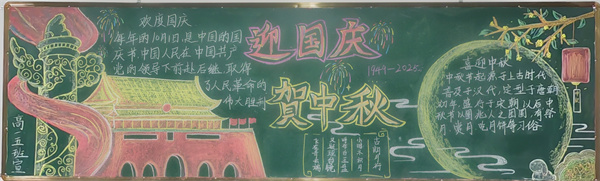 欢度国庆
每年的10月1日是中国的国
庆节.中国人民在中国共产
党的领导下前赴后继,取得
了人民革命的
伟大胜利
迎国庆
1949-2025
贺中秋
喜迎中秋
中秋节起源于上古时代
普及于汉代,定型于唐朝
初年,盛行于宋朝以后.中
秋节以圆兆人之团圆有祭
月、赏月、吃月饼等习俗
古朗月行
小时不识月
呼作白玉盘
又疑瑶台镜
飞在青云端
高一五班宣